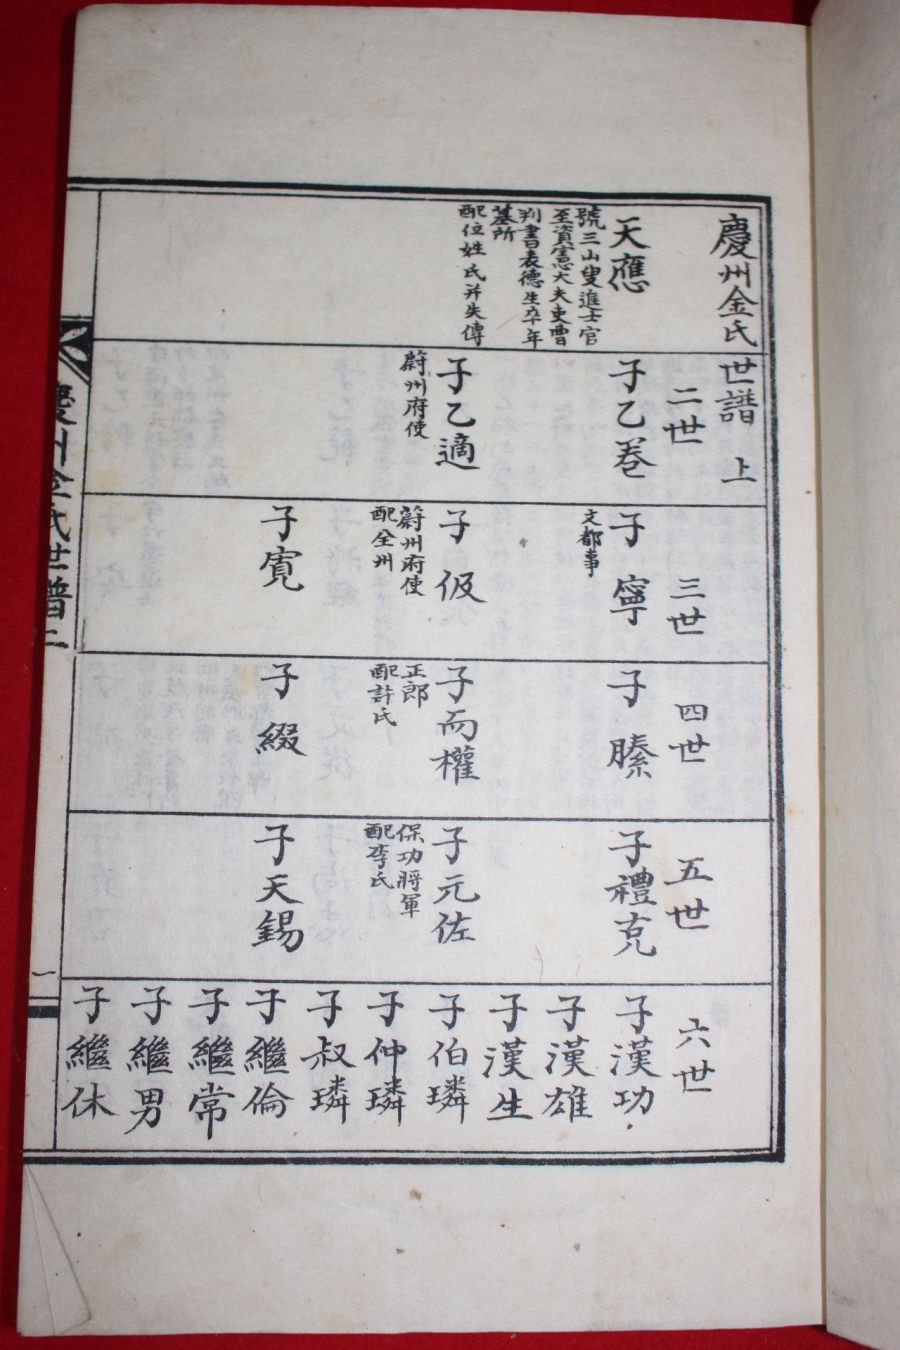 慶州金氏世譜 上
天應
號三山叟進士官
至資憲大夫吏曹
判書表德生卒年
墓所
配位姓氏幷失傳
二世
子乙卷
子乙適
蔚州府使
三世
子寧
文都事
子伋
蔚州府使
配全州
子寬
四世
子縢
子而權
正郎
配許氏
子綴
五世
子禮克
子元佐
保功將軍
配李氏
子天錫
六世
子漢功
子漢雄
子漢生
子伯璘
子仲璘
子叔璘
子繼倫
子繼常
子繼男
子繼休
慶州金氏世譜
一